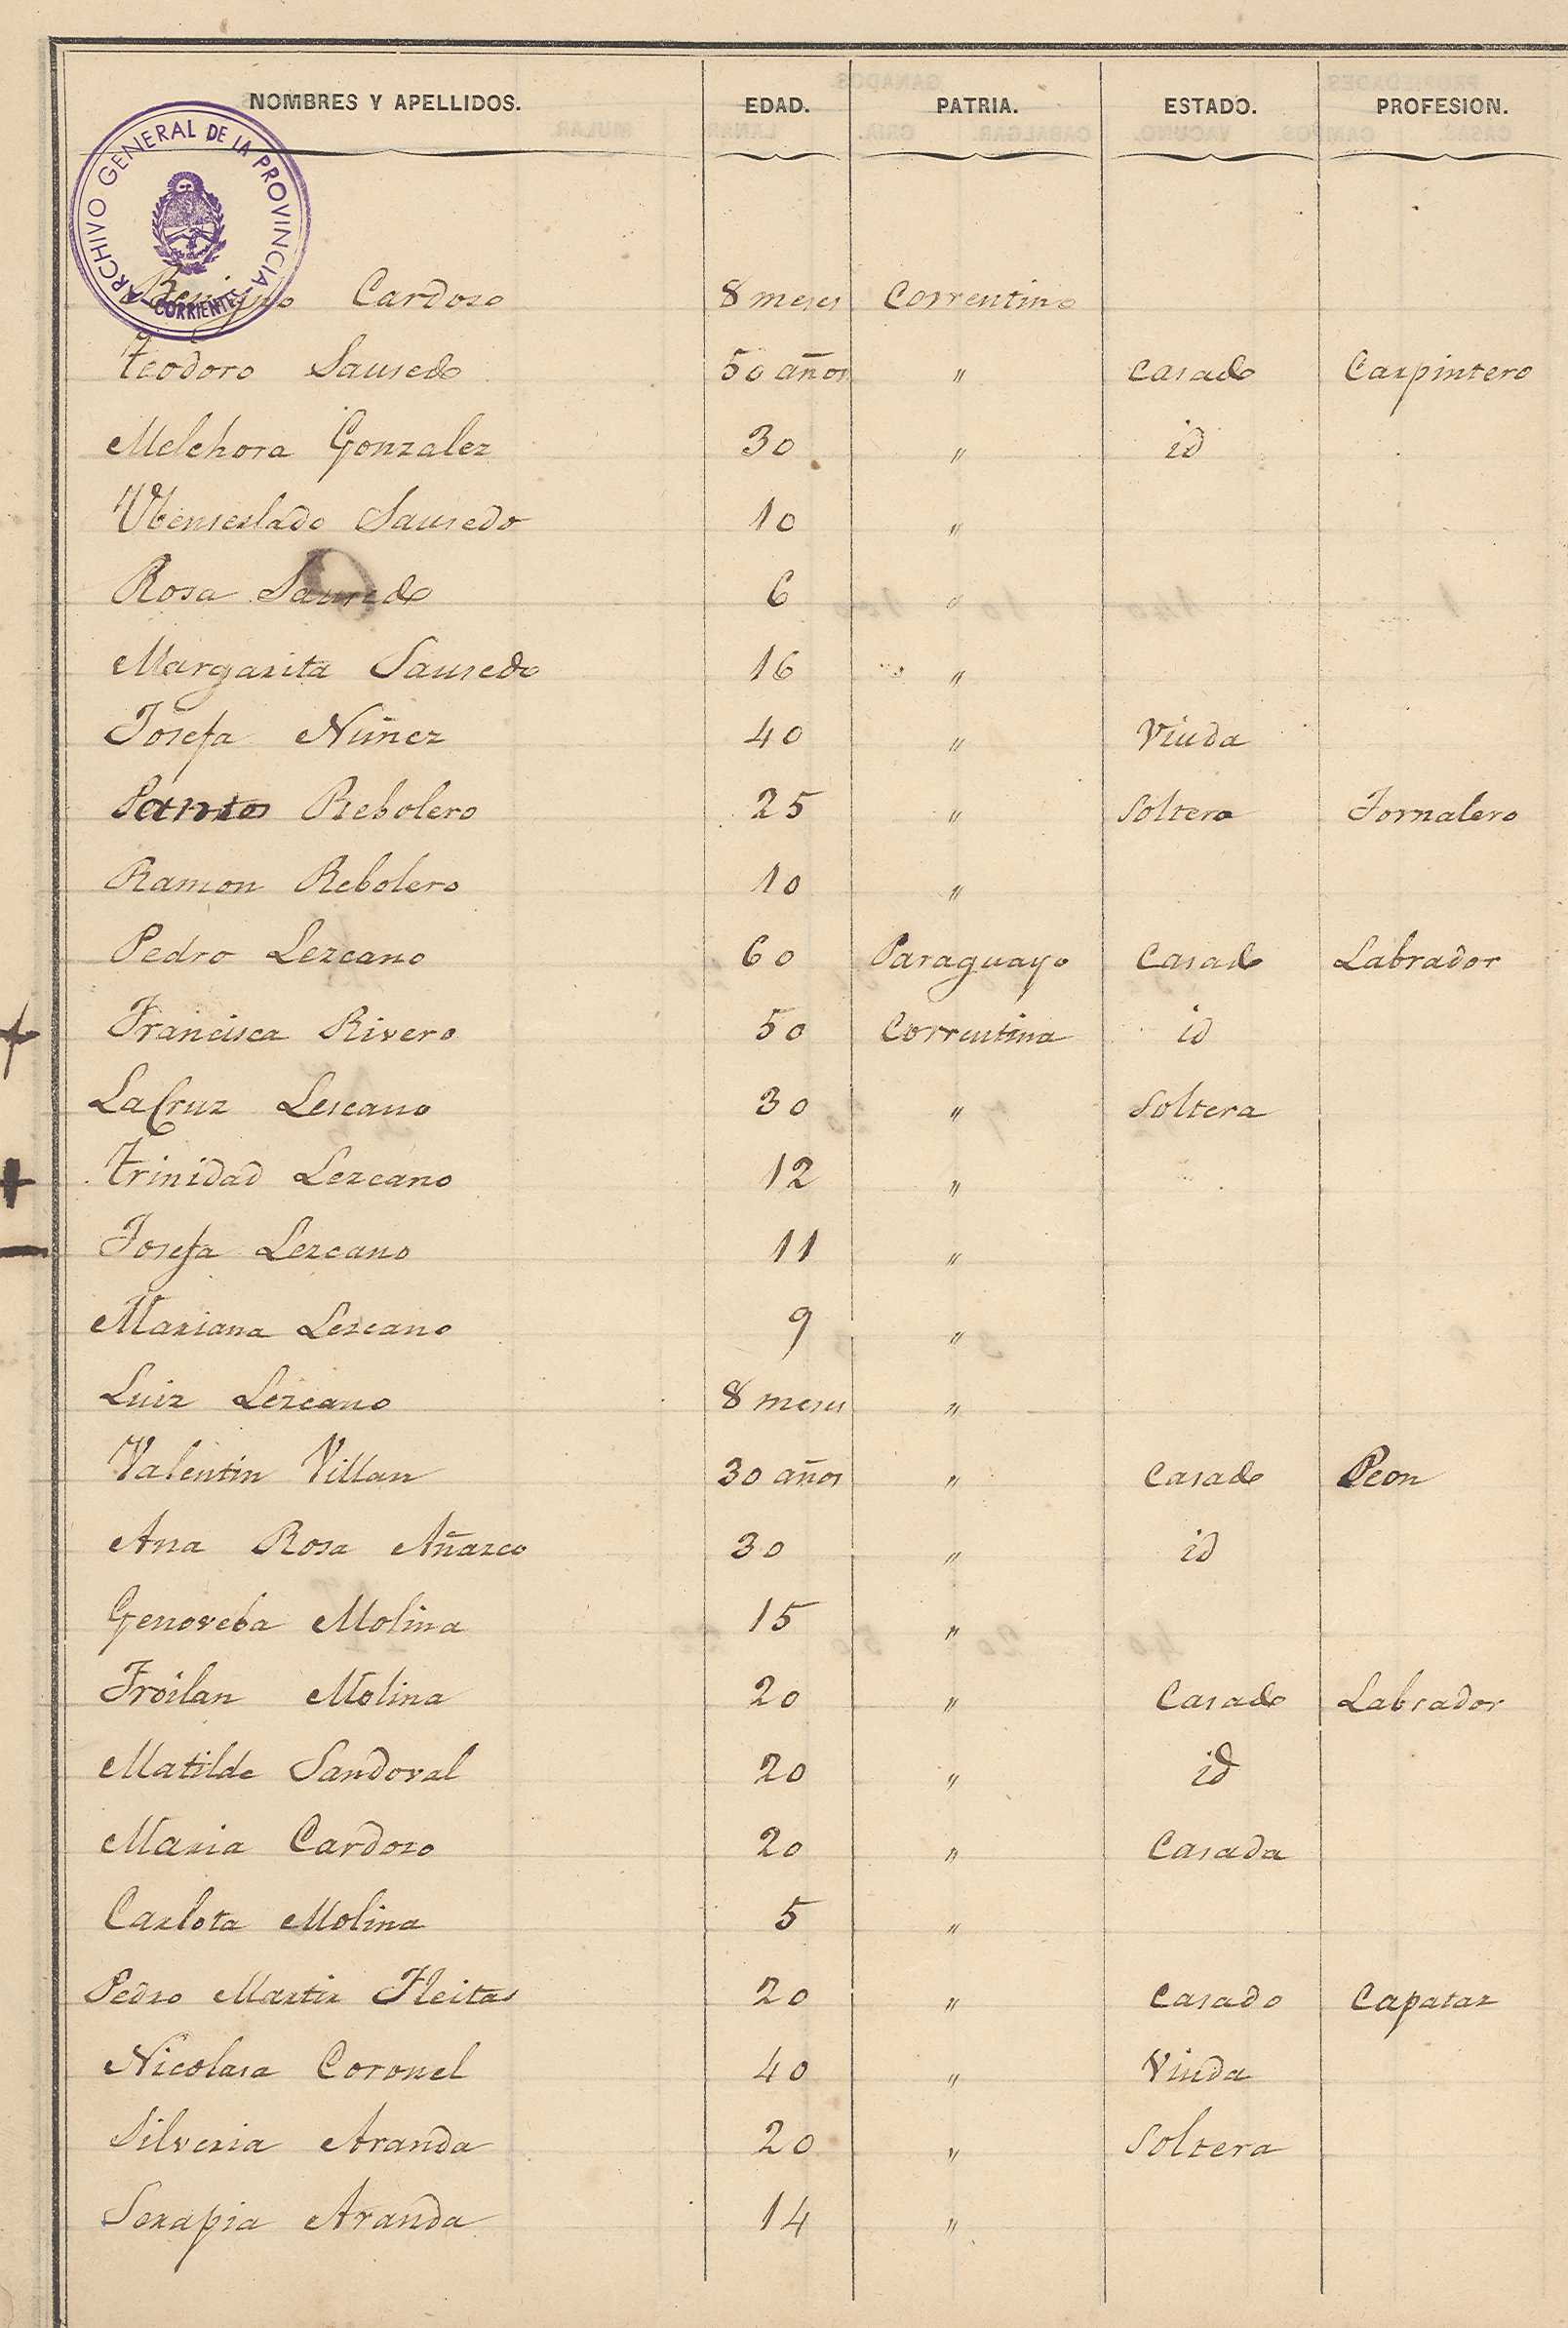 NOMBRES Y APELLIDOS. EDAD. PATRIA. ESTADO. PROFESION.
ARCHIVO GENERAL DE LA PROVINCIA - CORRIENTES -
Benigno Cardozo 8 meses Correntino
Teodoro Sausedo 50 años " Casado Carpintero
Melchora Gonzalez 30 " id
Wenseslado Sausedo 10 "
Rosa Sausedo 6 "
Margarita Sausedo 16 "
Josefa Núñez 40 " Viuda
Santos Rebolero 25 " Soltero Jornalero
Ramon Rebolero 10 "
Pedro Lezcano 60 Paraguayo Casado Labrador
Francisca Rivero 50 Correntina id
LaCruz Lescano 30 " Soltera
Trinidad Lezcano 12 "
Josefa Lezcano 11 "
Mariana Lezcano 9 "
Luiz Lezcano 8 meses "
Valentin Villan 30 años " Casado Peon
Ana Rosa Añasco 30 " id
Genoveba Molina 15 "
Froilan Molina 20 " Casado Labrador
Matilde Sandoval 20 " id
Maria Cardozo 20 " Casada
Carlota Molina 5 "
Pedro Martir Fleitas 20 " Casado Capataz
Nicolasa Coronel 40 " Viuda
Silveria Aranda 20 " Soltera
Serapia Aranda 14 "